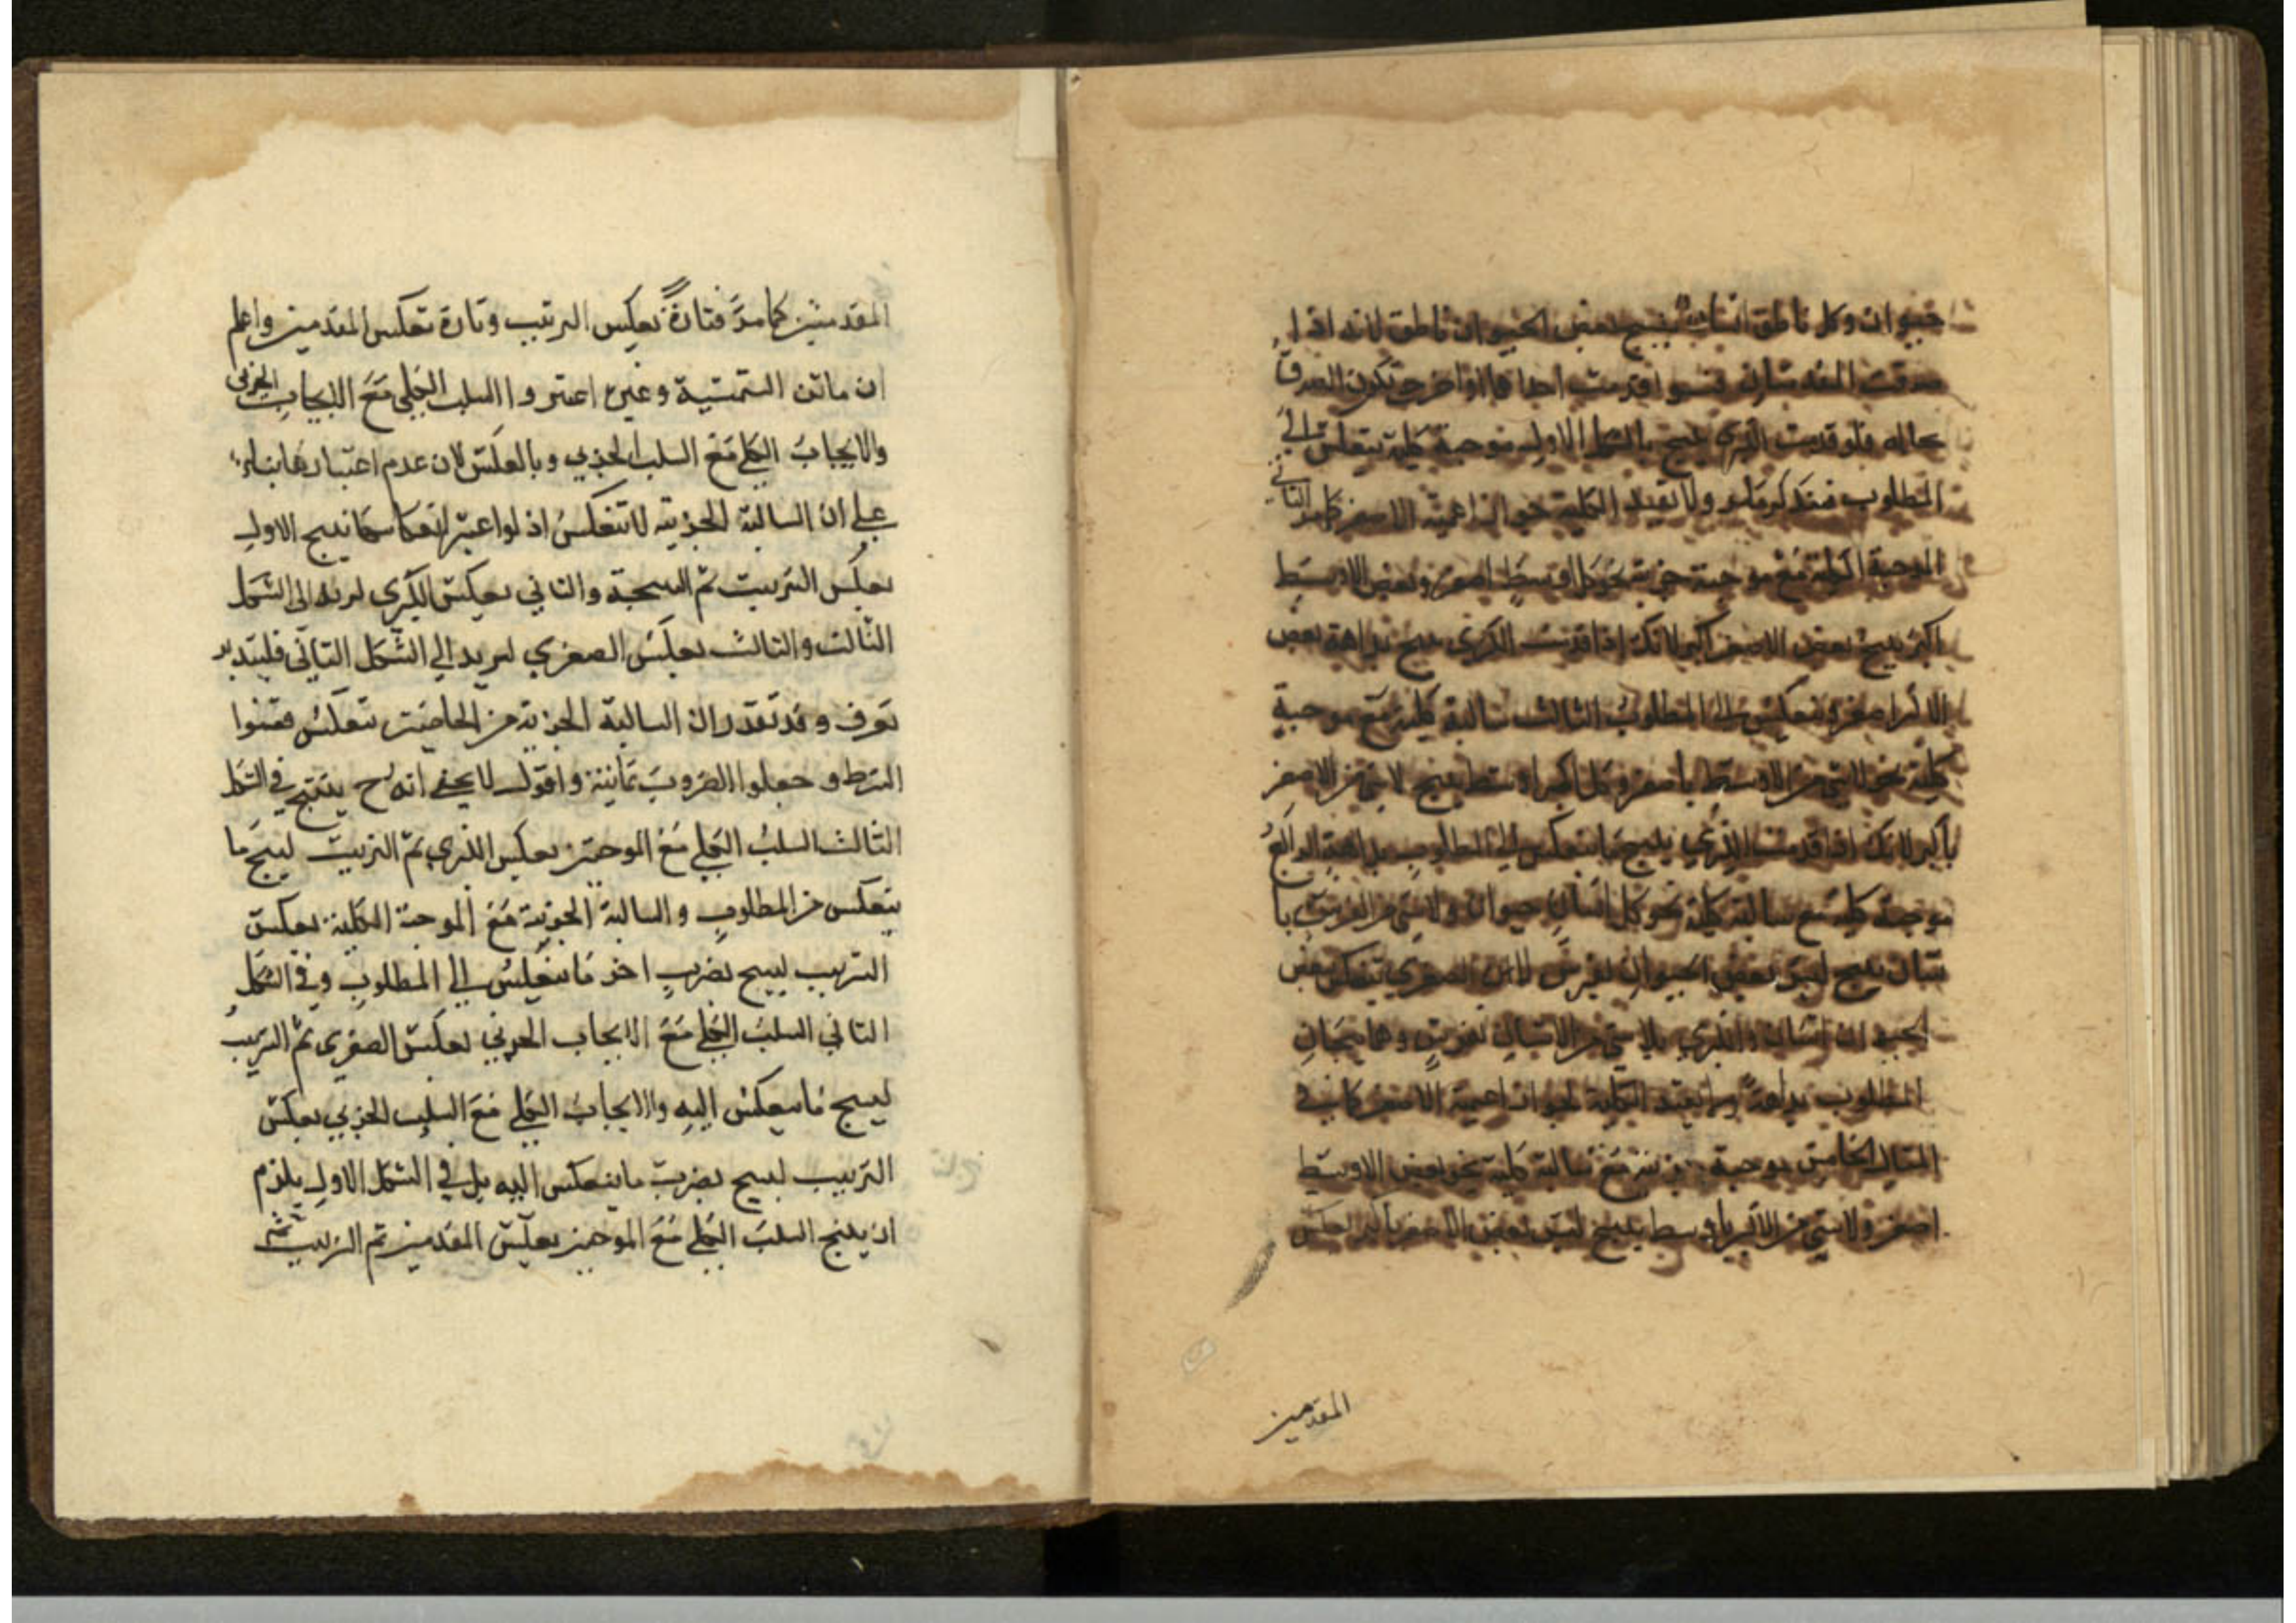 حيوان وكل ناطق انسان ينتج بعض الحيوان ناطق لانه اذا
صدقت المقدمتان فسوا قدمت احداهما او اخرت تكون الصدق
بحاله فلو قدمت الكبري نتج بالشكل الاول موجبة كلية تنعكس الي
المطلوب فتذكر ولا تفيد الكلية لجواز اعمية الاصغر كما مر الثاني
الموجبة الكلية مع موجبة جزئية نحو كل اوسط اصغر وبعض الاوسط
اكبر ينتج بعض الاصغر اكبر لانك اذا قدمت الكبري نتج بداهة بعض
الاكبر اصغر وينعكس الي المطلوب الثالث سالبة كلية مع موجبة
كلية نحو لا شي من الاوسط باصغر وكل اكبر اوسط ينتج لا شي من الاصغر
باكبر لانك اذا قدمت الكبري ينتج ما ينعكس الي المطلوب بداهة الرابع
موجبة كلية مع سالبة كلية نحو كل انسان حيوان ولا شي من الفرس با
نسان ينتج ليس بعض الحيوان بفرس لان الصغري تنعكس بعض
الحيوان انسان والكبري بلا شي من الانسان بفرس وهما ينتجان
المطلوب بداهة ولم تفيد الكلية لجواز اعمية الاصغر كما في
المثال الخامس موجبة جزئية مع سالبة كلية نحو بعض الاوسط
اصغر ولا شي من الاكبر باوسط ينتج ليس بعض الاصغر باكبر بعكس
المقدمتين
المقدمتين كما مر فتارة بعكس الترتيب وتارة تعكس المقدمتين واعلم
ان ماتن الشمسية وغيره اعتبروا السلب الكلي مع الايجاب الجزئي
والايجاب الكلي مع السلب الجزئي وبالعكس لان عدم اعتبارها بناء
علي ان السالبة الجزئية لا تنعكس اذ لو اعتبر انعكاسها نتج الاول
بعكس الترتيب ثم النتيجة والثاني بعكس الكبري ليرتد الي الشكل
الثالث والثالث بعكس الصغري ليرتد الي الشكل الثاني فليتدبر
تعرف وقد تقدر ان السالبة الجزئية من الخاصتين تنعكس فقننوا
الشرط وجعلوا الضروب ثمانية واقول لا يخفي انه ح ينتج في الشكل
الثالث السلب الكلي مع الموجبتين بعكس الكبري ثم الترتيب لينتج ما
ينعكس من المطلوب والسالبة الجزئية مع الموجبة الكلية بعكس
الترتيب لينتج بضرب اخر ما ينعكس الي المطلوب وفي الشكل
الثاني السلب الكلي مع الايجاب الجزئي بعكس الصغري ثم الترتيب
لينتج ما ينعكس اليه والايجاب الكلي مع السلب الجزئي بعكس
الترتيب لينتج بضرب ما ينعكس اليه بل في الشكل الاول يلزم
ان ينتج السلب الكلي مع الموجبتين بعكس المقدمتين ثم الترتيب ثم